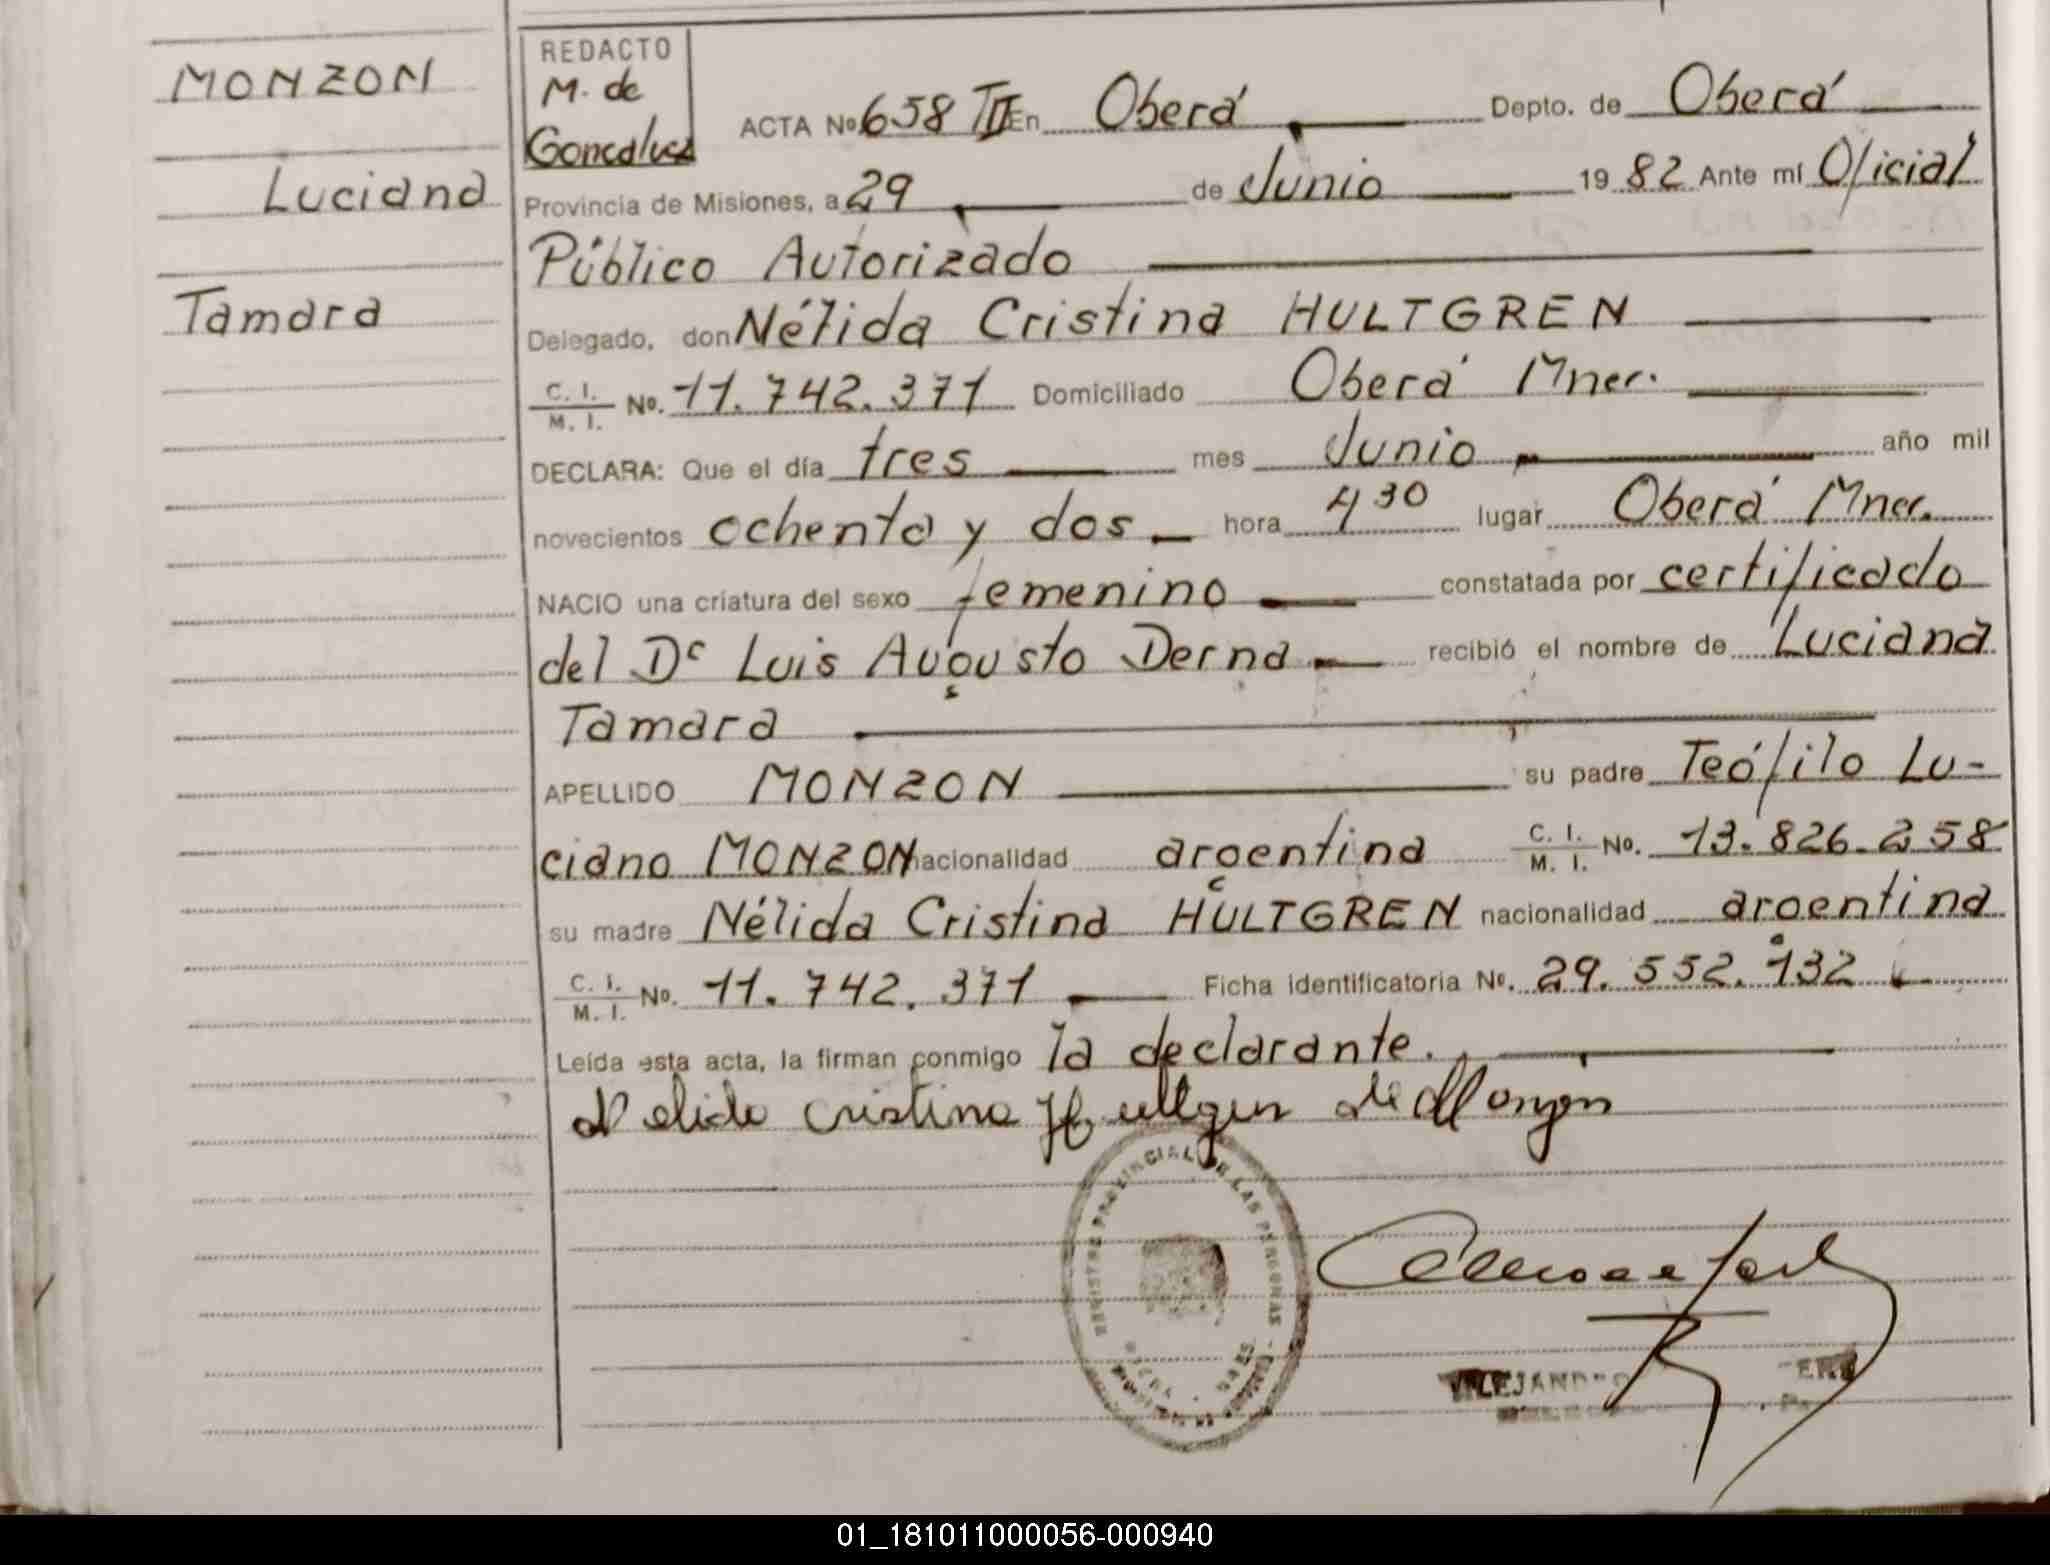 MONZON
Luciana
Tamara
REDACTO
M. de
Goncalvez
ACTA Nº 658 TII En Oberá Depto. de Oberá
Provincia de Misiones, a 29 de Junio 19 82 Ante mí Oficial
Público Autorizado
Delegado, don Nélida Cristina HULTGREN
C. I. / M. I. Nº. 11.742.371 Domiciliado Oberá Mnes.
DECLARA: Que el día tres mes Junio año mil
novecientos ochenta y dos hora 4 30 lugar Oberá Mnes.
NACIO una criatura del sexo femenino constatada por certificado
del Dr Luis Augusto Derna recibió el nombre de Luciana
Tamara
APELLIDO MONZON su padre Teófilo Lu-
ciano MONZON nacionalidad argentina C. I. / M. I. Nº. 13.826.258
su madre Nélida Cristina HULTGREN nacionalidad argentina
C. I. / M. I. Nº. 11.742.371 Ficha identificatoria Nº. 29.552.132
Leída esta acta, la firman conmigo la declarante.
Nelida Cristina Hultgren de Monzon
REGISTRO PROVINCIAL DE LAS PERSONAS
01_181011000056-000940